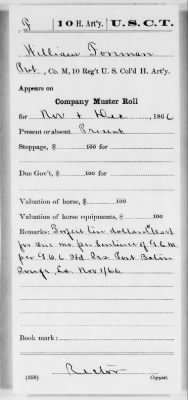 F 10 H. Art'y. U.S.C.T.
William
Pvt, Co. M, 10 Reg't U. S. Col'd H. Art'y.
Appears on
Company Muster Roll
for Nov & Dec, 1866
Present or absent Present
Stoppage, $ 100 for
Due Gov't, $ 100 for
Valuation of horse, $ 100
Valuation of horse equipments, $ 100
Remarks: Forfeit ten dollars
for one mo. per Sentence of G.C.M.
per G.O. Hd. Qrs. Post Baton
Rouge, La. Nov 1/66
Book mark:
Rector
(358) Copyist.